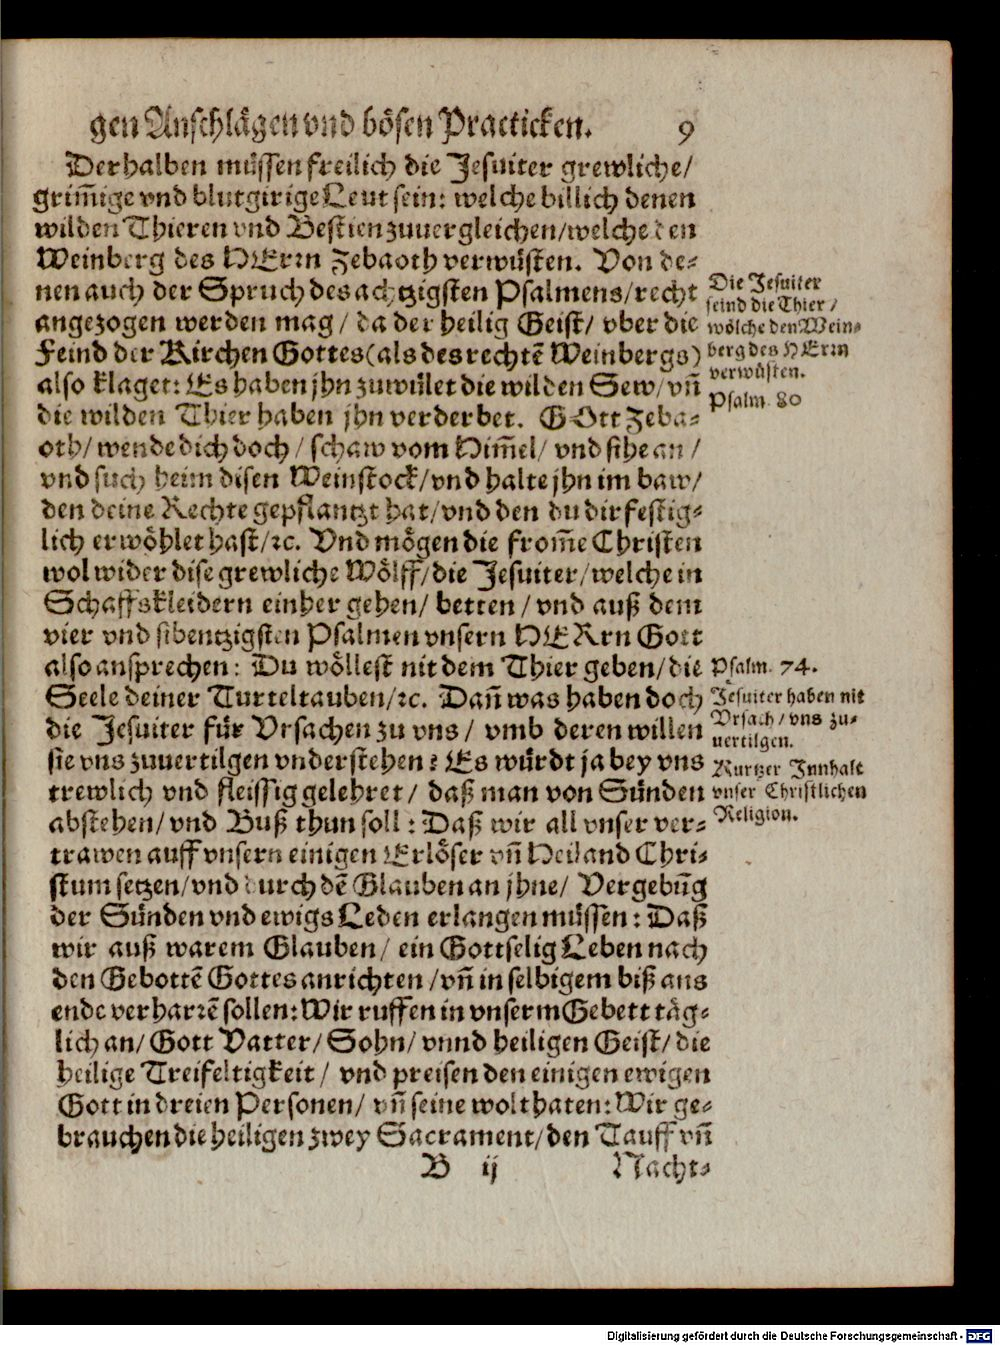 gen Anschlägen vnd bösen Practicken. 9
Derhalben müssen freilich die Jesuiter grewliche/
grim̃ige vnd blutgirige Leut sein: welche billich denen
wilden Thieren vnd Bestien zuuergleichen/welche den
Weinberg des HErꝛn Zebaoth verwüsten. Von de-
nen auch der Spruch des achtzigsten Psalmens/recht
angezogen werden mag/ da der heilig Geist/ vber die
Feind der Kirchen Gottes (als des rechtẽ Weinbergs)
also klaget: Es haben jhn zuwület die wilden Sew/ vñ
die wilden Thier haben jhn verderbet. GOtt Zeba-
oth/ wende dich doch/ schaw vom Him̃el/ vnd sihe an/
vnd such heim disen Weinstock/vnd halte jhn im baw/
den deine Rechte gepflantzt hat/vnd den du dir festig-
lich erwöhlet hast/ꝛc. Vnd mögen die from̃e Christen
wol wider dise grewliche Wölff/die Jesuiter/welche in
Schaffskleidern einher gehen/ betten/ vnd auß dem
vier vnd sibentzigsten Psalmen vnsern HERrn Gott
also ansprechen: Du wöllest nit dem Thier geben/die
Seele deiner Turteltauben/ꝛc. Dañ was haben doch
die Jesuiter für Vrsachen zu vns/ vmb deren willen
sie vns zuuertilgen vnderstehen? Es würdt ja bey vns
trewlich vnd fleissig gelehret/ daß man von Sünden
abstehen/ vnd Buß thun soll: Daß wir all vnser ver-
trawen auff vnsern einigen Erlöser vñ Heiland Chri-
stum setzen/vnd durch dẽ Glauben an jhne/ Vergebũg
der Sünden vnd ewigs Leben erlangen müssen: Daß
wir auß warem Glauben/ ein Gottselig Leben nach
den Gebottẽ Gottes anrichten/vñ in selbigem biß ans
ende verharꝛẽ sollen: Wir ruffen in vnserm Gebett täg-
lich an/ Gott Vatter/ Sohn/ vnnd heiligen Geist/ die
heilige Treifeltigkeit/ vnd preisen den einigen ewigen
Gott in dreien Personen/ vñ seine wolthaten: Wir ge-
brauchen die heiligen zwey Sacrament/den Tauff vñ
B ij Nacht-
Die Jesuiter
seind die Thier/
wölche den Wein-
berg des HErꝛn
verwüsten.
Psalm. 80
Psalm. 74.
Jesuiter haben nit
Vrsach/ vns zu-
uertilgen.
Kurtzer Innhalt
vnser Christlichen
Religion.
Digitalisierung gefördert durch die Deutsche Forschungsgemeinschaft - DFG